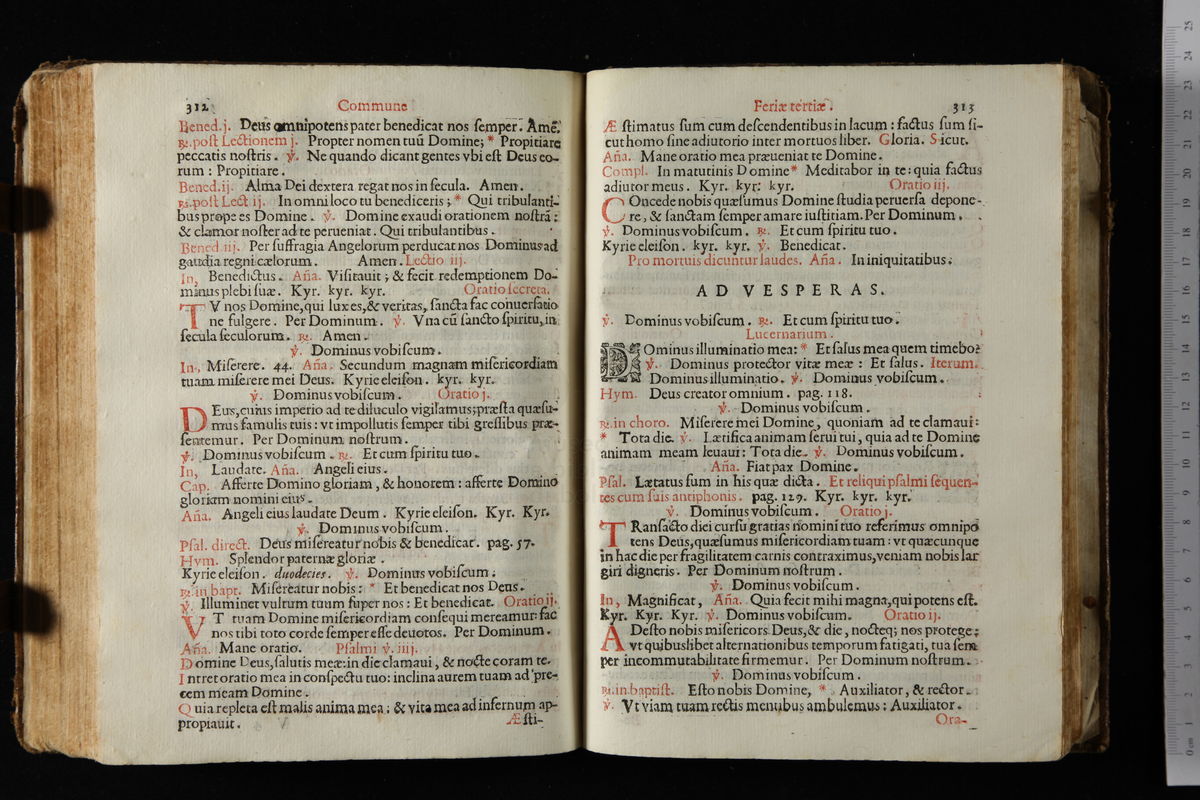 312 Commune
Bened.j. Deus omnipotens pater benedicat nos semper. Amē.
℞.post Lectionem j. Propter nomen tuū Domine; * Propitiare
peccatis nostris. ℣. Ne quando dicant gentes vbi est Deus eo-
rum : Propitiare.
Bened.ij. Alma Dei dextera regat nos in secula. Amen.
℞.post Lect ij. In omni loco tu benediceris; * Qui tribulanti-
bus prope es Domine. ℣. Domine exaudi orationem nostrā:
& clamor noster ad te perueniat. Qui tribulantibus.
Bened.iij. Per suffragia Angelorum perducat nos Dominus ad
gaudia regni cælorum. Amen. Lectio iij.
In, Benedictus. Aña. Visitauit; & fecit redemptionem Do-
minus plebi suæ. Kyr. kyr. kyr. Oratio secreta.
TV nos Domine, qui lux es, & veritas, sancta fac conuersatio
ne fulgere. Per Dominum. ℣. Vna cū sancto spiritu, in
secula seculorum. ℞. Amen.
℣. Dominus vobiscum.
In, Miserere. 44. Aña. Secundum magnam misericordiam
tuam miserere mei Deus. Kyrie eleison. kyr. kyr.
℣. Dominus vobiscum. Oratio j.
DEus, cuius imperio ad te diluculo vigilamus; præsta quæsu-
mus famulis tuis: vt impollutis semper tibi gressibus præ-
sentemur. Per Dominum nostrum.
℣. Dominus vobiscum. ℞. Et cum spiritu tuo.
In, Laudate. Aña. Angeli eius.
Cap. Afferte Domino gloriam, & honorem: afferte Domino
gloriam nomini eius.
Aña. Angeli eius laudate Deum. Kyrie eleison. Kyr. Kyr.
℣. Dominus vobiscum.
Psal. direct. Deus misereatur nobis & benedicat. pag. 57.
Hym. Splendor paternæ gloriæ.
Kyrie eleison. duodecies. ℣. Dominus vobiscum.
℞. in bapt. Misereatur nobis: * Et benedicat nos Deus.
℣. Illuminet vultum tuum super nos: Et benedicat. Oratio ij.
VT tuam Domine misericordiam consequi mereamur: fac
nos tibi toto corde semper esse deuotos. Per Dominum.
Aña. Mane oratio. Psalmi ℣. iiij.
Domine Deus, salutis meæ: in die clamaui, & nocte coram te.
Intret oratio mea in conspectu tuo: inclina aurem tuam ad pre-
cem meam Domine.
Quia repleta est malis anima mea; & vita mea ad infernum ap-
propiauit.
Æsti-
Feriæ tertiæ. 313
Æstimatus sum cum descendentibus in lacum: factus sum si-
cut homo sine adiutorio inter mortuos liber. Gloria. Sicut.
Aña. Mane oratio mea præueniat te Domine.
Compl. In matutinis Domine * Meditabor in te: quia factus
adiutor meus. Kyr. kyr: kyr. Oratio iij.
COncede nobis quæsumus Domine studia peruersa depone-
re, & sanctam semper amare iustitiam. Per Dominum.
℣. Dominus vobiscum. ℞. Et cum spiritu tuo.
Kyrie eleison. kyr. kyr. ℣. Benedicat.
Pro mortuis dicuntur laudes. Aña. In iniquitatibus.
AD VESPERAS.
℣. Dominus vobiscum. ℞. Et cum spiritu tuo.
Lucernarium.
DOminus illuminatio mea: * Et salus mea quem timebo?
℣. Dominus protector vitæ meæ: Et salus. Iterum.
Dominus illuminatio. ℣. Dominus vobiscum.
Hym. Deus creator omnium. pag. 118.
℣. Dominus vobiscum.
℞. in choro. Miserere mei Domine, quoniam ad te clamaui:
* Tota die. ℣. Lætifica animam serui tui, quia ad te Domine
animam meam leuaui: Tota die. ℣. Dominus vobiscum.
Aña. Fiat pax Domine.
Psal. Lætatus sum in his quæ dicta. Et reliqui psalmi sequen-
tes cum suis antiphonis. pag. 129. Kyr. kyr. kyr.
℣. Dominus vobiscum. Oratio j.
TRansacto diei cursu gratias nomini tuo referimus omnipo
tens Deus, quæsumus misericordiam tuam: vt quæcunque
in hac die per fragilitatem carnis contraximus, veniam nobis lar
giri digneris. Per Dominum nostrum.
℣. Dominus vobiscum.
In, Magnificat, Aña. Quia fecit mihi magna, qui potens est.
Kyr. Kyr. Kyr. ℣. Dominus vobiscum. Oratio ij.
ADesto nobis misericors Deus, & die, nocteq; nos protege;
vt quibuslibet alternationibus temporum fatigati, tua sem
per incommutabilitate firmemur. Per Dominum nostrum.
℣. Dominus vobiscum.
℞. in baptist. Esto nobis Domine, * Auxiliator, & rector.
℣. Vt viam tuam rectis mentibus ambulemus: Auxiliator.
Ora-